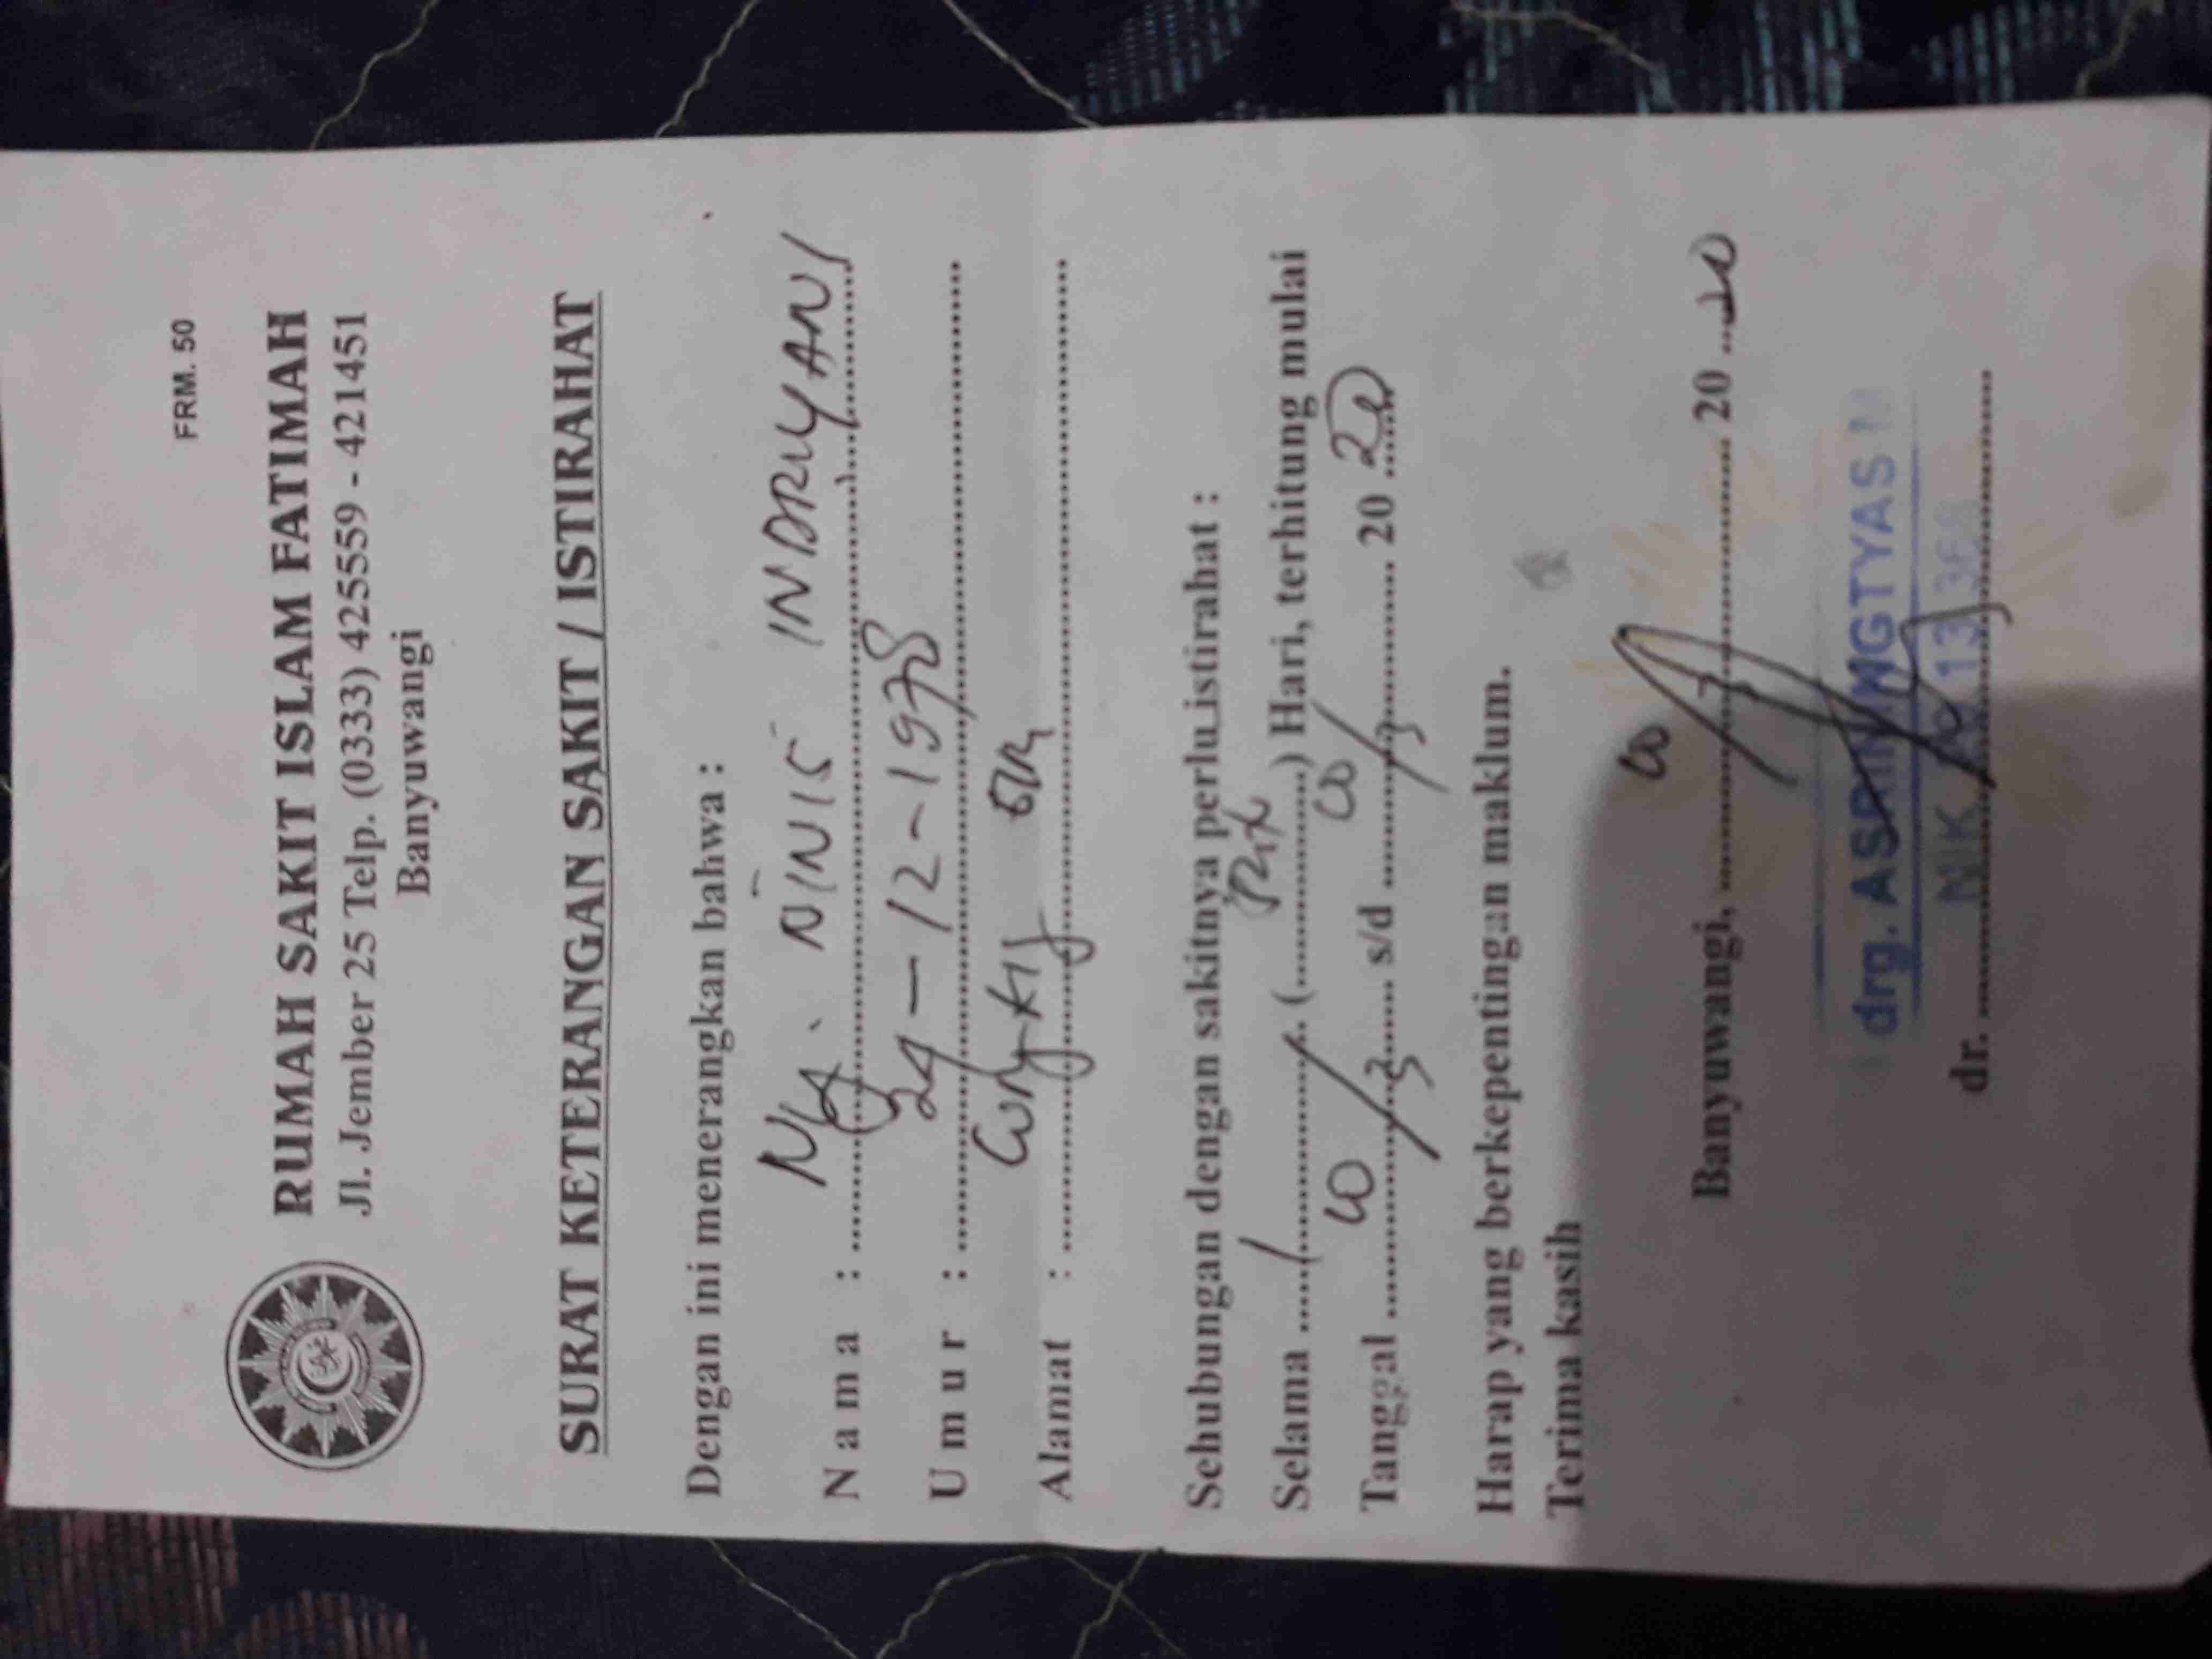 FRM. 50
RUMAH SAKIT ISLAM FATIMAH
Jl. Jember 25 Telp. (0333) 425559 - 421451
Banyuwangi
SURAT KETERANGAN SAKIT / ISTIRAHAT
Dengan ini menerangkan bahwa :
Nama : Ny. NINIS INDRIYANI
Umur : 24-12-1978
Alamat :
Sehubungan dengan sakitnya perlu istirahat :
Selama 1 (..................) Hari, terhitung mulai
Tanggal 10/3 s/d 10/3 20 20
Harap yang berkepentingan maklum.
Terima kasih
Banyuwangi, 10/3 20 20
drg. ASRININGTYAS M
dr. NIK 13 368